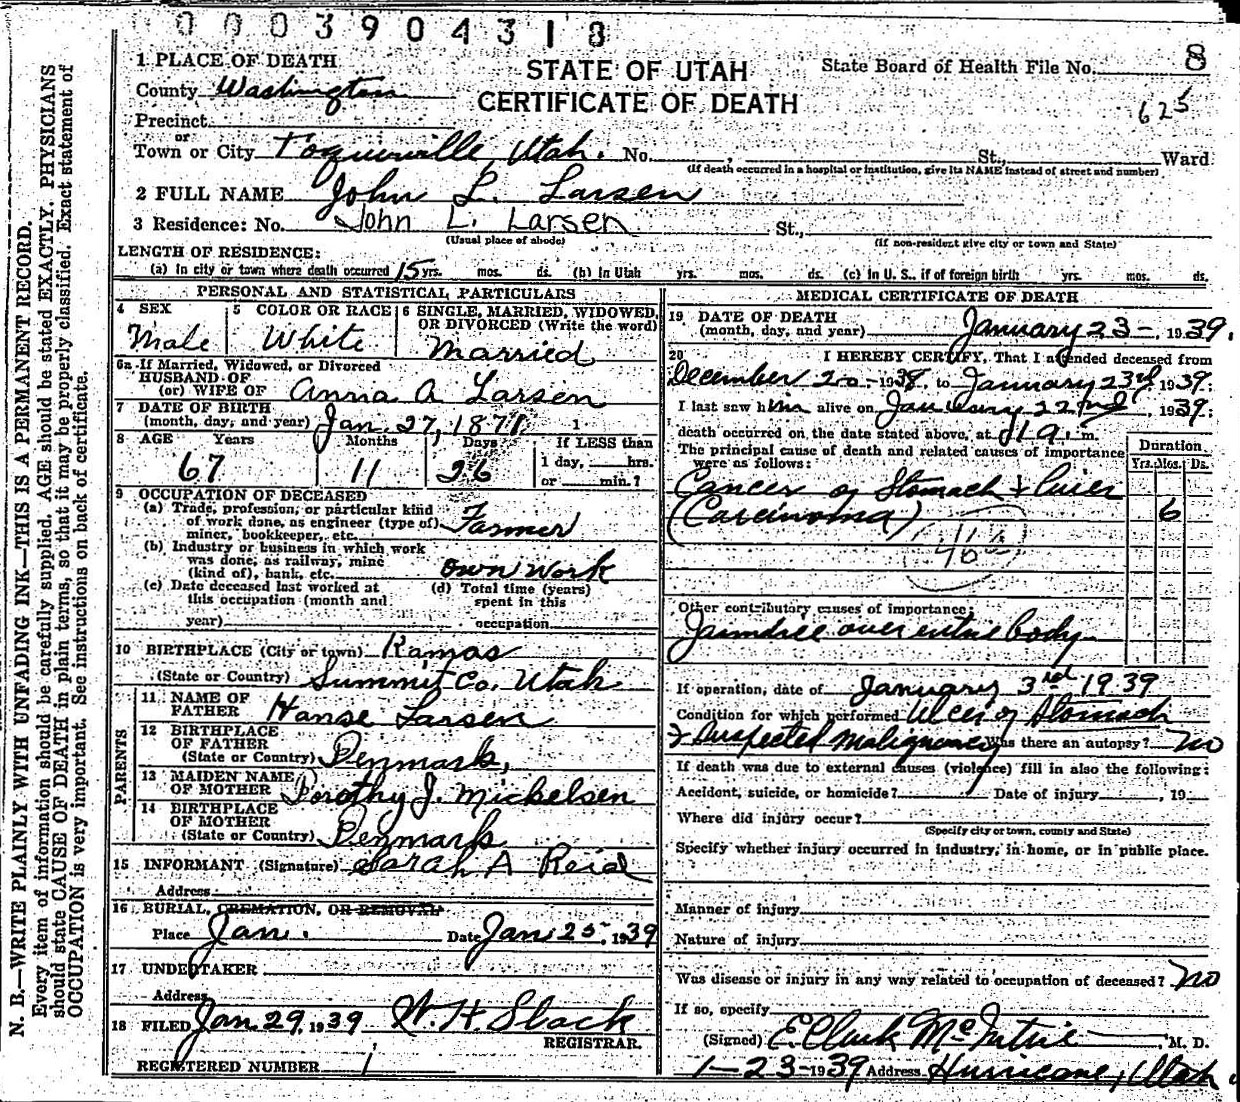 0003904318
1 PLACE OF DEATH
STATE OF UTAH
CERTIFICATE OF DEATH
State Board of Health File No. 8
625
County Washington
Precinct
or
Town or City Toquerville, Utah. No. , St., Ward
(If death occurred in a hospital or institution, give its NAME instead of street and number)
2 FULL NAME John L. Larsen
3 Residence: No. John L. Larsen St.,
(Usual place of abode) (If non-resident give city or town and State)
LENGTH OF RESIDENCE:
(a) In city or town where death occurred 15 yrs. mos. ds. (b) In Utah yrs. mos. ds. (c) in U. S., if of foreign birth yrs. mos. ds.
PERSONAL AND STATISTICAL PARTICULARS
4 SEX
Male
5 COLOR OR RACE
White
6 SINGLE, MARRIED, WIDOWED,
OR DIVORCED (Write the word)
Married
6a If Married, Widowed, or Divorced
HUSBAND OF
(or) WIFE OF Anna A Larsen
7 DATE OF BIRTH
(month, day, and year) Jan. 27, 1871 1
8 AGE Years Months Days If LESS than
67 11 26 1 day, hrs.
or min.?
9 OCCUPATION OF DECEASED
(a) Trade, profession, or particular kind
of work done, as engineer (type of)
miner, bookkeeper, etc. Farmer
(b) Industry or business in which work
was done, as railway, mine
(kind of), bank, etc. Own Work
(c) Date deceased last worked at
this occupation (month and
year)
(d) Total time (years)
spent in this
occupation
10 BIRTHPLACE (City or town) Kamas
(State or Country) Summit Co. Utah
PARENTS
11 NAME OF
FATHER Hanse Larsen
12 BIRTHPLACE
OF FATHER
(State or Country) Denmark,
13 MAIDEN NAME
OF MOTHER Dorothy J. Mickelsen
14 BIRTHPLACE
OF MOTHER
(State or Country) Denmark
15 INFORMANT (Signature) Sarah A Reid
Address
16 BURIAL, CREMATION, OR REMOVAL
Place Jan. Date Jan 25, 1939
17 UNDERTAKER
Address
18 FILED Jan. 29, 1939 W. H. Slack
REGISTRAR.
REGISTERED NUMBER 1
MEDICAL CERTIFICATE OF DEATH
19 DATE OF DEATH
(month, day, and year) January 23-, 1939.
20 I HEREBY CERTIFY, That I attended deceased from
December 20-1938, to January 23rd, 1939;
I last saw him alive on January 22nd, 1939;
death occurred on the date stated above, at m.
The principal cause of death and related causes of importance
were as follows:
Duration
Yrs. Mos. Ds.
Cancer of Stomach & Liver
(Carcinoma) 6
46
Other contributory causes of importance:
Jaundice over entire body
If operation, date of January 3rd 1939
Condition for which performed Ulcer of Stomach
& Suspected malignancy Was there an autopsy? No
If death was due to external causes (violence) fill in also the following:
Accident, suicide, or homicide? Date of injury , 19
Where did injury occur?
(Specify city or town, county and State)
Specify whether injury occurred in industry, in home, or in public place.
Manner of injury
Nature of injury
Was disease or injury in any way related to occupation of deceased? No
If so, specify
(Signed) E. Clark McIntire, M. D.
1-23-1939 Address Hurricane, Utah.
N. B.—WRITE PLAINLY WITH UNFADING INK—THIS IS A PERMANENT RECORD.
Every item of information should be carefully supplied. AGE should be stated EXACTLY. PHYSICIANS
should state CAUSE OF DEATH in plain terms, so that it may be properly classified. Exact statement of
OCCUPATION is very important. See instructions on back of certificate.